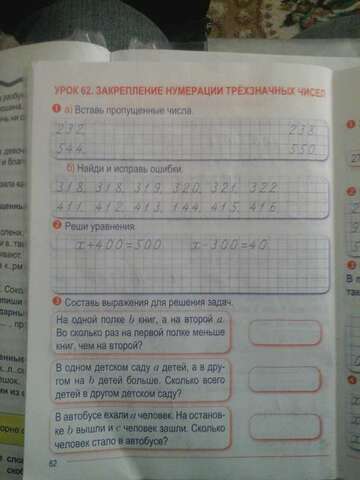 УРОК 62. ЗАКРЕПЛЕНИЕ НУМЕРАЦИИ ТРЁХЗНАЧНЫХ ЧИСЕЛ
1 а) Вставь пропущенные числа.
232, 238
544, 550
б) Найди и исправь ошибки.
318, 318, 319, 320, 321, 322
411, 412, 413, 144, 415, 416
2 Реши уравнения.
x+400=500 x-300=40
3 Составь выражения для решения задач.
На одной полке b книг, а на второй a.
Во сколько раз на первой полке меньше
книг, чем на второй?
В одном детском саду a детей, а в дру-
гом на b детей больше. Сколько всего
детей в другом детском саду?
В автобусе ехали a человек. На останов-
ке b вышли и c человек зашли. Сколько
человек стало в автобусе?
62